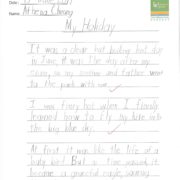 Name: Athena Cheung
My Holiday
It was a clear but boiling hot day
in June, it was the day after my
so my and father went
to the park with me.
I was very hot when I finally
learned how to fly my kite into
the big blue sky.
At first it was like the life of a
busy bird But as time passed it
became a graceful eagle, soaring